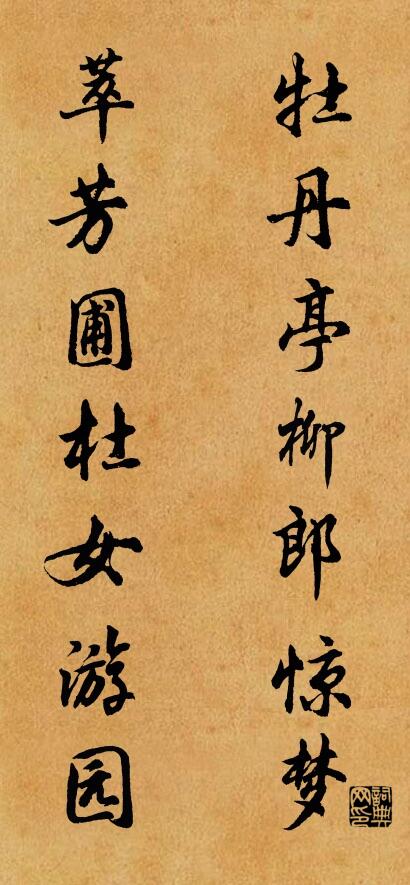 牡丹亭柳郎惊梦
萃芳圃杜女游园
詞典网印